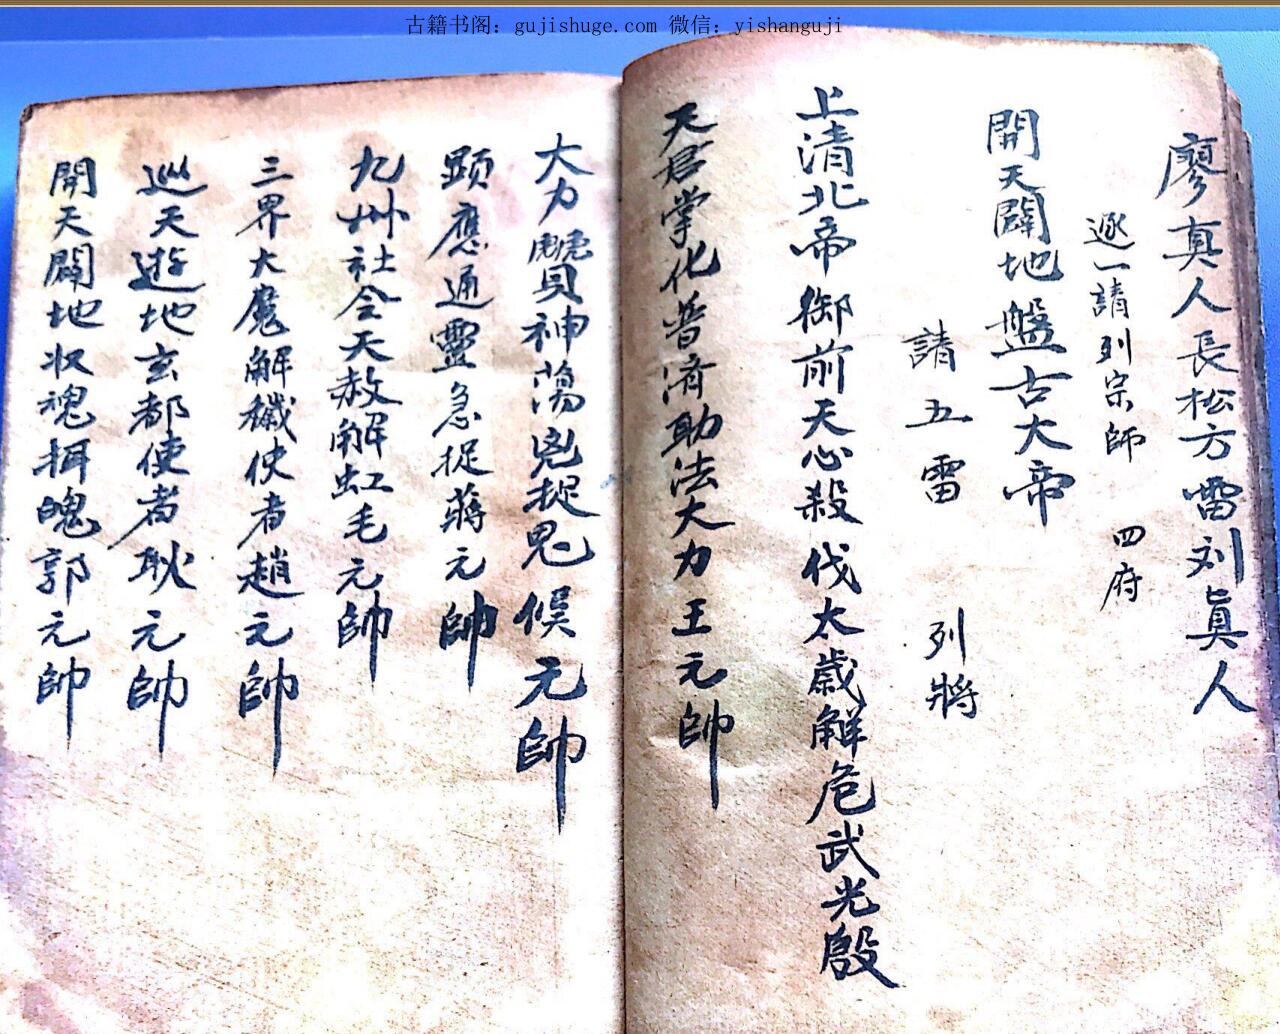 古籍书阁：gujishuge.com 微信：yishanguji
廖真人長松方雷刘真人
逐一請列宗師 四府
開天闢地盤古大帝
請五雷 列將
上清北帝御前天心殺伐太歲解危武光殷
天君掌化普濟助法大力王元帥
大力神蕩兇捉鬼侯元帥
顕應通靈急捉蒋元帥
九州社令天赦解虹毛元帥
三界大魔解穢使者趙元帥
巡天遊地玄都使者耿元帥
開天闢地収魂拑魄郭元帥